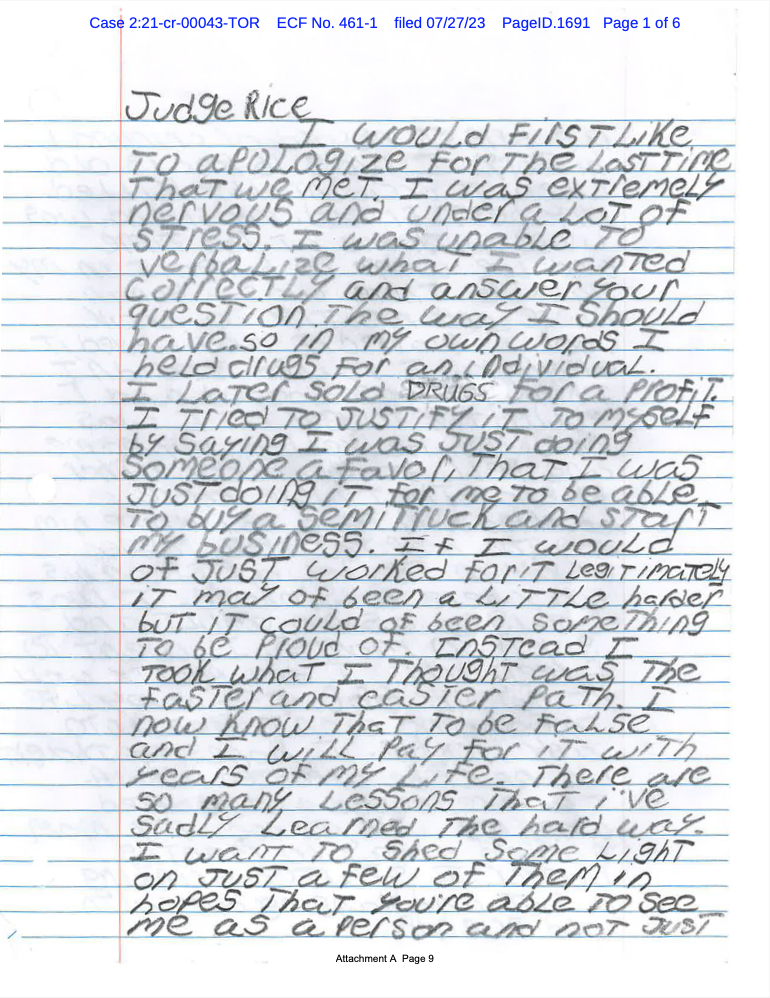 Case 2:21-cr-00043-TOR ECF No. 461-1 filed 07/27/23 PageID.1691 Page 1 of 6
Judge Rice
I would first like
to apologize for the last time
that we met. I was extremely
nervous and under a lot of
stress. I was unable to
verbalize what I wanted
correctly and answer your
question the way I should
have. so in my own words I
held drugs for an individual.
I later sold DRUGS for a profit.
I tried to justify it to myself
by saying I was just doing
someone a favor, that I was
just doing it for me to be able
to buy a semi truck and start
my business. If I would
of just worked for it legitimately
it may of been a little harder
but it could of been something
to be proud of. Instead I
took what I thought was the
faster and easier path. I
now know that to be false
and I will pay for it with
years of my life. There are
so many lessons that i've
sadly learned the hard way.
I want to shed some light
on just a few of them in
hopes that you're able to see
me as a person and not just
Attachment A Page 9